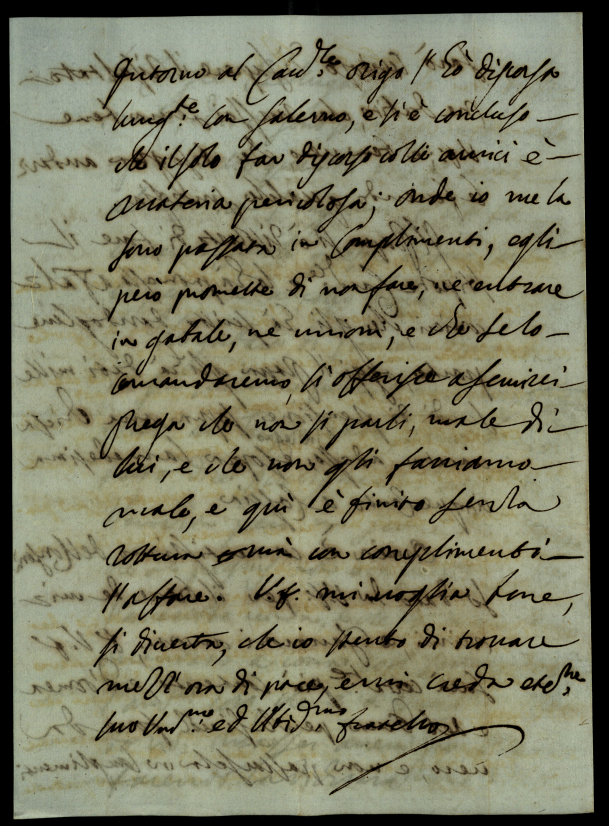 Intorno al Card.le Origo l'hò discorsa
lung.te con Salerno, e si è concluso
che il solo far discorsi colli amici è
materia pericolosa; onde io me la
sono passata in complimenti, egli
però promette di non fare, ne entrare
in gabale, ne unioni, e che se lo
comandaremo, si offerisce a servirci
prega che non si parli, male di
lui, e che non gli facciamo
male, e quì è finito senza
rottura con complimenti
l'affare. V.S. mi voglia bene,
si diverta, che io stento di trovare
mezz'ora di pace, e mi creda
suo Um.mo ed Obb.mo fratello